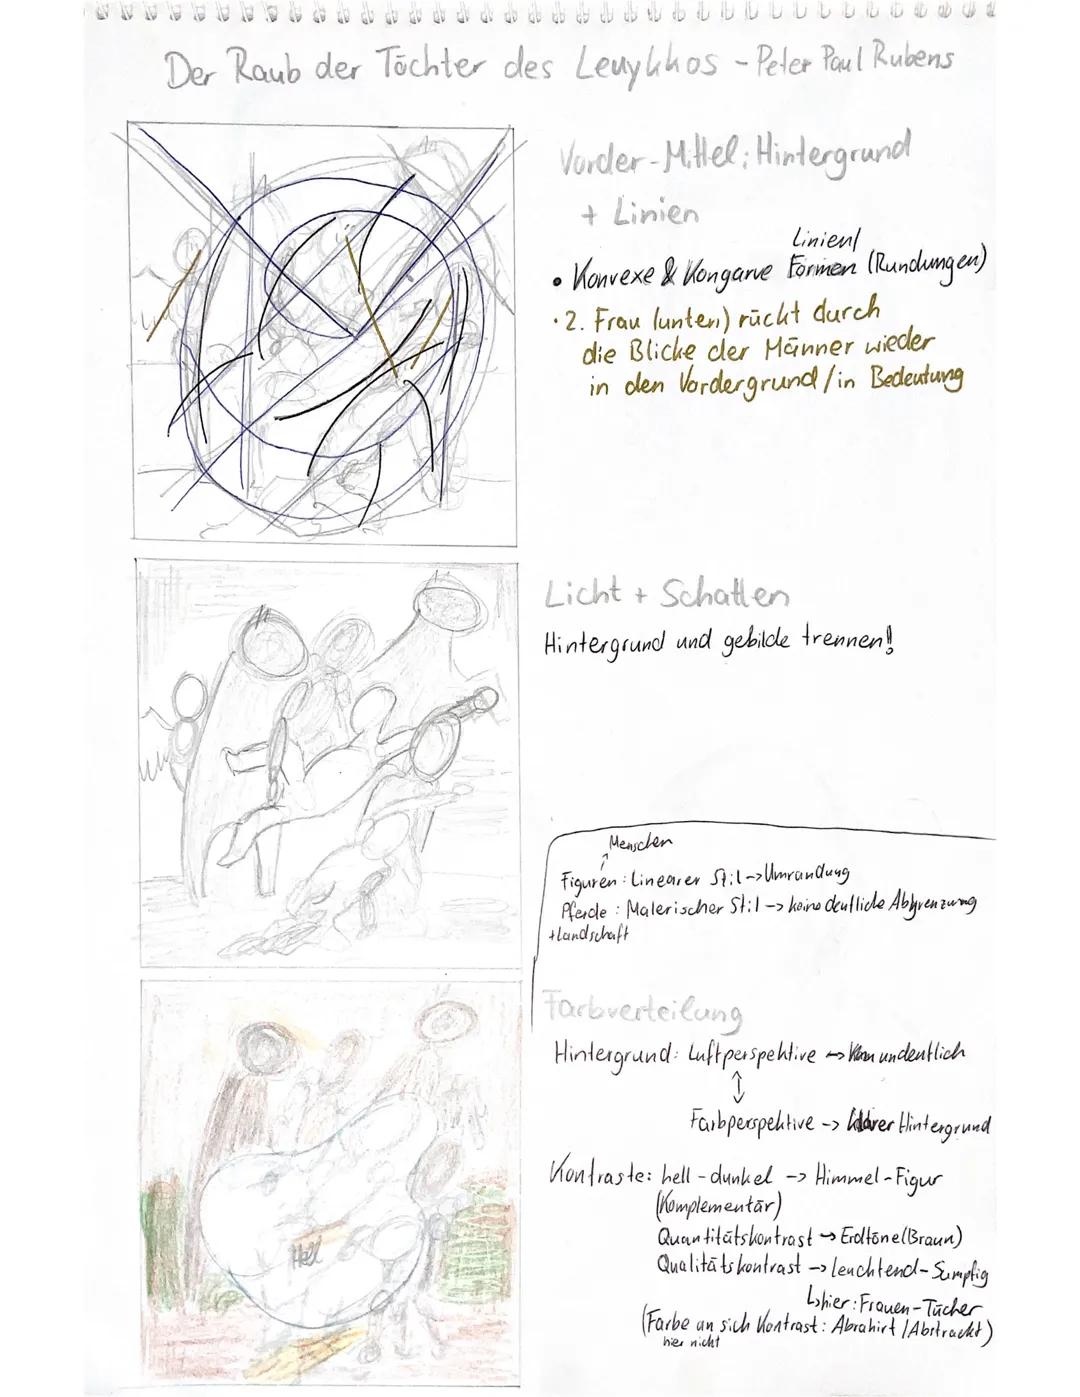 Der Raub der Töchter des Leuykkos - Peter Paul Rubens
Vorder-Mittel; Hintergrund
+ Linien
Linien/
• Konvexe & Kongarve Formen (Rundungen)
· 2. Frau (unten) rückt durch
die Blicke der Männer wieder
in den Vordergrund/in Bedeutung
Licht + Schatten
Hintergrund und gebilde trennen!
Menschen
Figuren: Linearer Stil -> Umrandung
Pferde: Malerischer Stil -> keine deutliche Abgrenzung
+Landschaft
Farbverteilung
Hintergrund: Luftperspektive -> undeutlich
Farbperspektive -> klarer Hintergrund
Kontraste: hell-dunkel -> Himmel-Figur
(Komplementär)
Quantitätskontrast -> Erdtöne (Braun)
Qualitätskontrast -> leuchtend-Sumpfig
↳ hier: Frauen-Tücher
(Farbe an sich Kontrast: Abrahirt/Abstrackt)
hier nicht
Hell